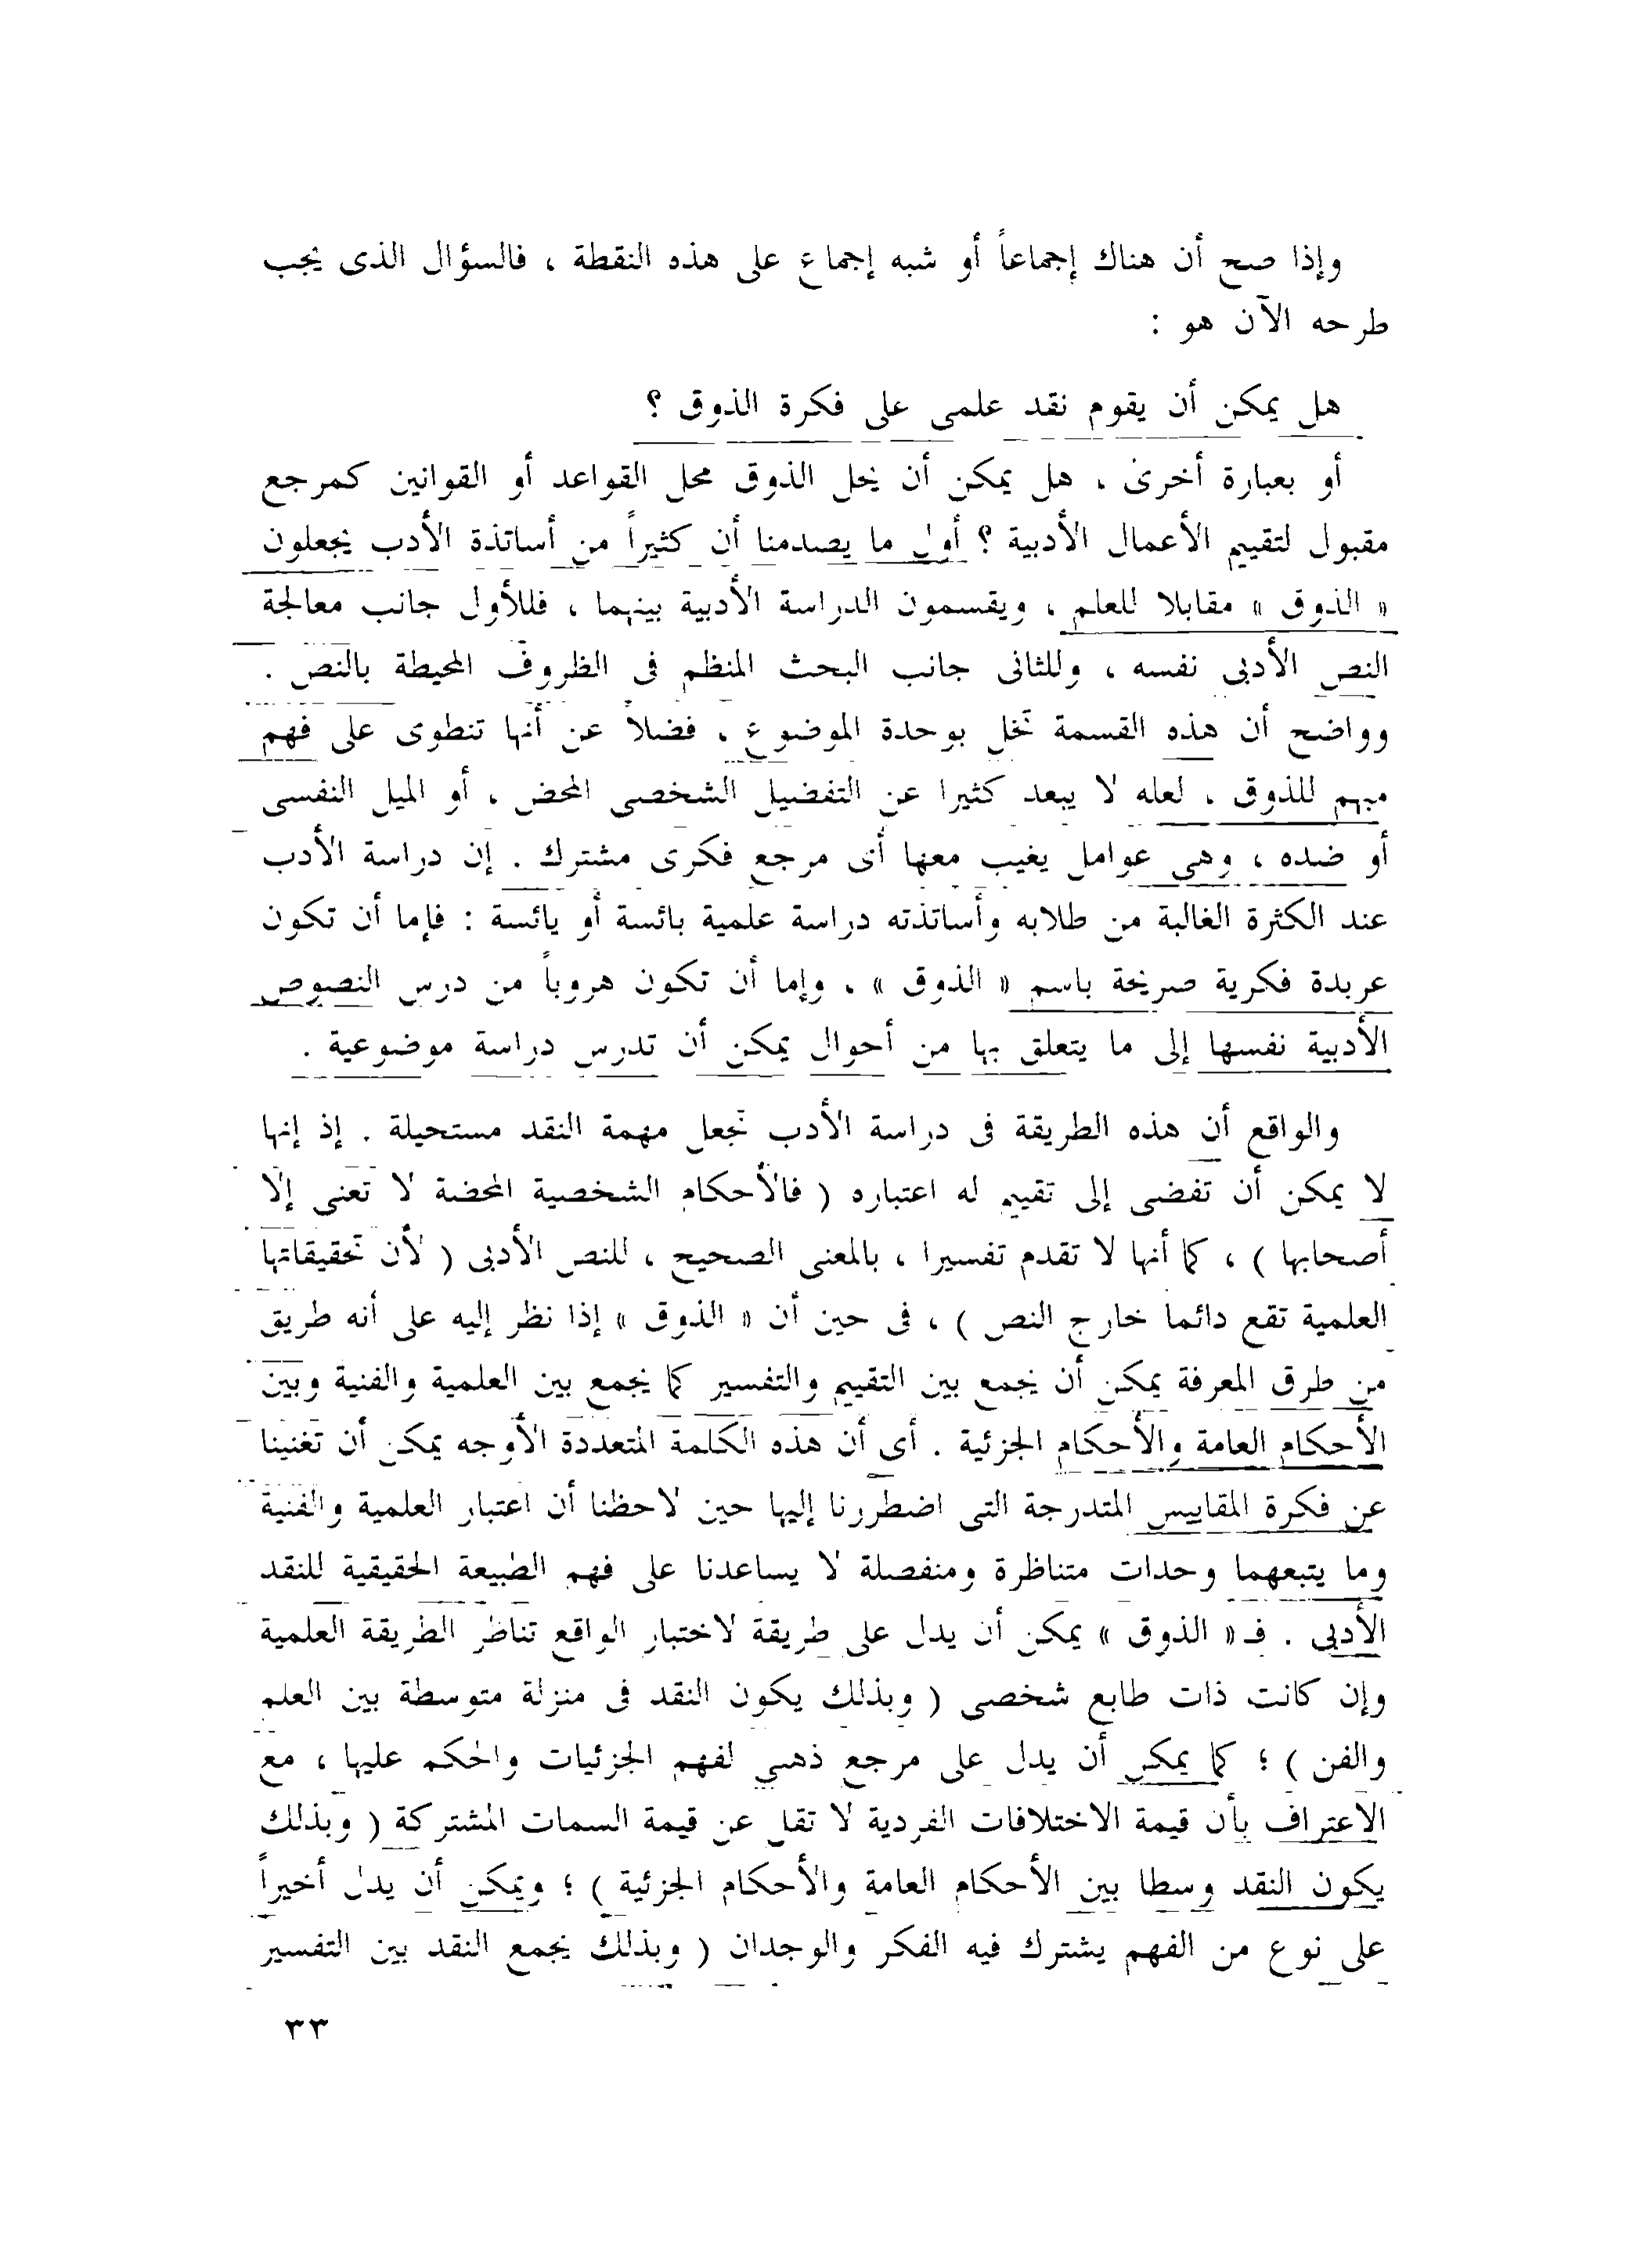 وإذا صح أن هناك إجماعاً أو شبه إجماع على هذه النقطة ، فالسؤال الذى يجب
طرحه الآن هو :
هل يمكن أن يقوم نقد علمى على فكرة الذوق ؟
أو بعبارة أخرى ، هل يمكن أن يحل الذوق محل القواعد أو القوانين كمرجع
مقبول لتقييم الأعمال الأدبية ؟ أول ما يصدمنا أن كثيراً من أساتذة الأدب يجعلون
« الذوق » مقابلا للعلم ، ويقسمون الدراسة الأدبية بينهما ، فللأول جانب معالجة
النص الأدبى نفسه ، وللثانى جانب البحث المنظم فى الظروف المحيطة بالنص .
وواضح أن هذه القسمة تخل بوحدة الموضوع ، فضلاً عن أنها تنطوى على فهم
مبهم للذوق ، لعله لا يبعد كثيرا عن التفضيل الشخصى المحض ، أو الميل النفسى
أو ضده ، وهى عوامل يغيب معها أى مرجع فكرى مشترك . إن دراسة الأدب
عند الكثرة الغالبة من طلابه وأساتذته دراسة علمية بائسة أو يائسة : فإما أن تكون
عربدة فكرية صريحة باسم « الذوق » ، وإما أن تكون هروباً من درس النصوص
الأدبية نفسها إلى ما يتعلق بها من أحوال يمكن أن تدرس دراسة موضوعية .
والواقع أن هذه الطريقة فى دراسة الأدب تجعل مهمة النقد مستحيلة . إذ إنها
لا يمكن أن تفضى إلى تقييم له اعتباره ( فالأحكام الشخصية المحضة لا تعنى إلا
أصحابها ) ، كما أنها لا تقدم تفسيرا ، بالمعنى الصحيح ، للنص الأدبى ( لأن تحقيقاتها
العلمية تقع دائما خارج النص ) ، فى حين أن « الذوق » إذا نظر إليه على أنه طريق
من طرق المعرفة يمكن أن يجمع بين التقييم والتفسير كما يجمع بين العلمية والفنية وبين
الأحكام العامة والأحكام الجزئية . أى أن هذه الكلمة المتعددة الأوجه يمكن أن تغنينا
عن فكرة المقاييس المتدرجة التى اضطررنا إليها حين لاحظنا أن اعتبار العلمية والفنية
وما يتبعهما وحدات متناظرة ومنفصلة لا يساعدنا على فهم الطبيعة الحقيقية للنقد
الأدبى . فـ « الذوق » يمكن أن يدل على طريقة لاختبار الواقع تناظر الطريقة العلمية
وإن كانت ذات طابع شخصى ( وبذلك يكون النقد فى منزلة متوسطة بين العلم
والفن ) ؛ كما يمكن أن يدل على مرجع ذهنى لفهم الجزئيات والحكم عليها ، مع
الاعتراف بأن قيمة الاختلافات الفردية لا تقل عن قيمة السمات المشتركة ( وبذلك
يكون النقد وسطا بين الأحكام العامة والأحكام الجزئية ) ؛ ويمكن أن يدل أخيراً
على نوع من الفهم يشترك فيه الفكر والوجدان ( وبذلك يجمع النقد بين التفسير
٣٣